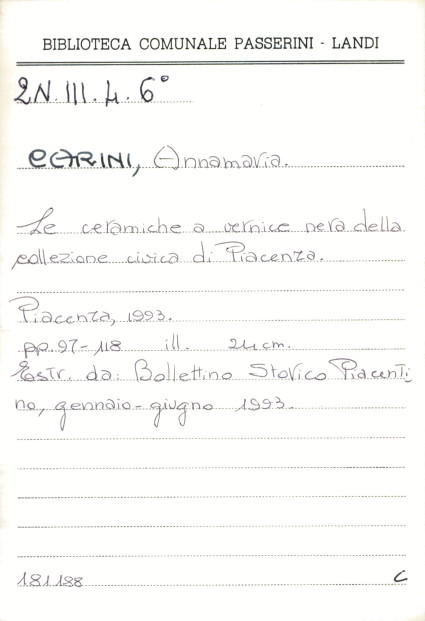 BIBLIOTECA COMUNALE PASSERINI - LANDI
2N.III.4.6°
CARINI, Annamaria.
Le ceramiche a vernice nera della
collezione civica di Piacenza.
Piacenza, 1993.
pp.97-118 ill. 24cm.
Estr. da: Bollettino Storico Piacenti
no, gennaio-giugno 1993.
181188 C